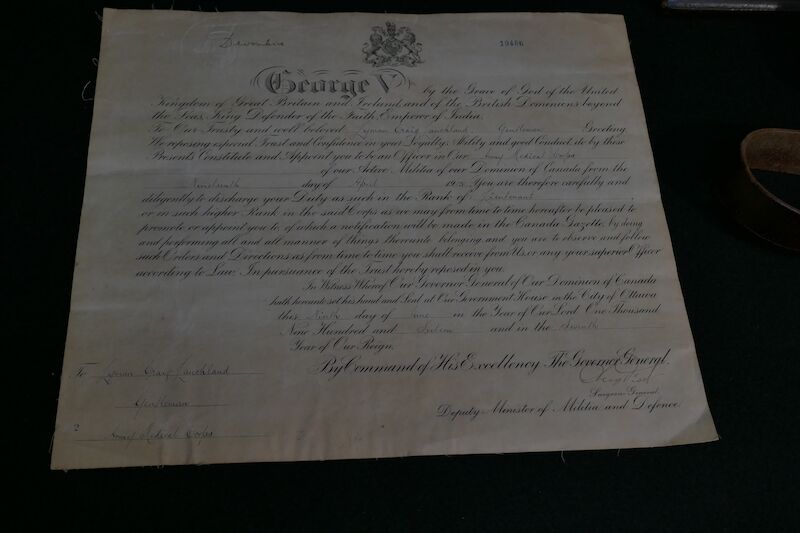 Devonshire
19486
George V by the Grace of God of the United
Kingdom of Great Britain and Ireland, and of the British Dominions beyond
the Seas King Defender of the Faith Emperor of India.
To Our Trusty and well beloved Craig Gentleman Greeting
We reposing especial Trust and Confidence in your Loyalty, Ability and good Conduct, do by these
Presents Constitute and Appoint you to be an Officer in Our Army Medical Corps
of our Active Militia of our Dominion of Canada from the
day of April 191 You are therefore carefully and
diligently to discharge your Duty as such in the Rank of Lieutenant
or in such higher Rank in the said Corps as we may from time to time hereafter be pleased to
promote or appoint you to, of which a notification will be made in the Canada Gazette, by doing
and performing all and all manner of things thereunto belonging and you are to observe and follow
such Orders and Directions as from time to time you shall receive from Us, or any your superior Officer
according to Law. In pursuance of the Trust hereby reposed in you.
In Witness Whereof Our Governor General of Our Dominion of Canada
hath hereunto set his hand and Seal at Our Government House in the City of Ottawa
this Ninth day of June in the Year of Our Lord One Thousand
Nine Hundred and and in the Seventh
Year of Our Reign.
By Command of His Excellency The Governor General.
To Craig
Surgeon-General
Gentleman
Deputy Minister of Militia and Defence
2
Army Medical Corps